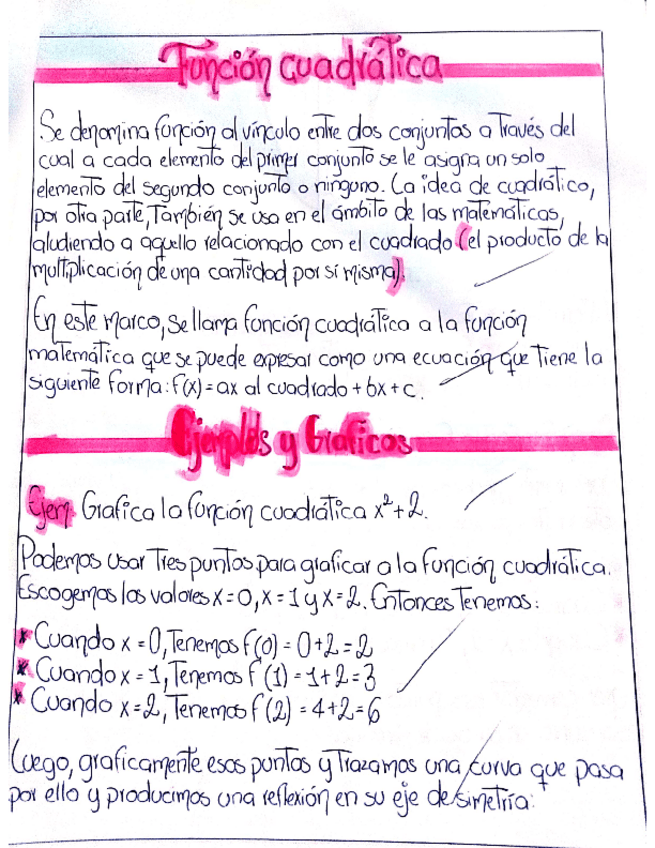 Función cuadrática
Se denomina función al vínculo entre dos conjuntos a través del
cual a cada elemento del primer conjunto se le asigna un solo
elemento del segundo conjunto o ninguno. La idea de cuadrático,
por otra parte, también se usa en el ámbito de las matemáticas,
aludiendo a aquello relacionado con el cuadrado (el producto de la
multiplicación de una cantidad por sí misma).
En este marco, se llama función cuadrática a la función
matemática que se puede expresar como una ecuación que tiene la
siguiente forma: f(x) = ax al cuadrado + bx + c.
Ejemplos y Graficos
Ejem. Grafica la función cuadrática x²+2.
Podemos usar tres puntos para graficar a la función cuadrática.
Escogemos los valores x=0, x=1 y x=2. Entonces tenemos:
* Cuando x = 0, tenemos f(0) = 0+2=2
* Cuando x = 1, tenemos f(1) = 1+2=3
* Cuando x=2, tenemos f(2) = 4+2=6
Luego, graficamente esos puntos y trazamos una curva que pasa
por ello y producimos una reflexión en su eje de simetría: